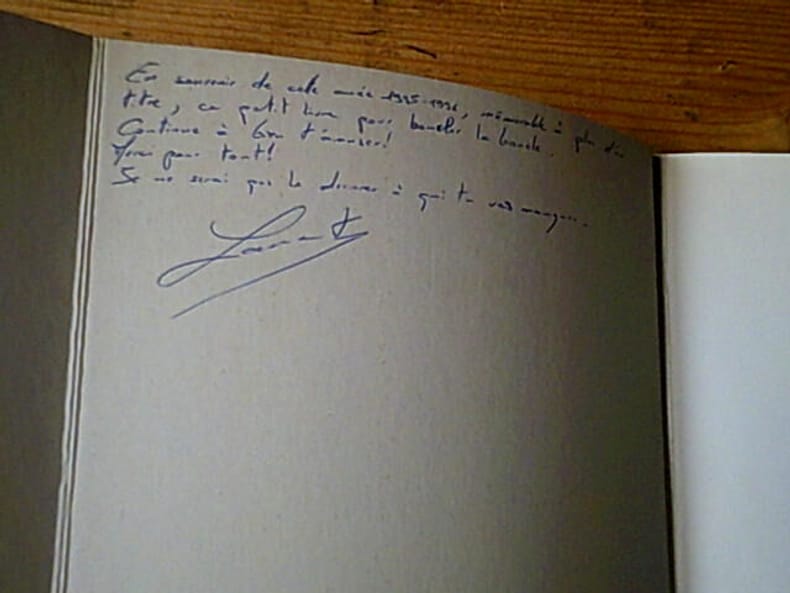 En souvenir de cette année 1995-1996, mémorable à plus d'un
titre, ce petit livre pour boucler la boucle.
Continue à bien t'amuser!
Merci pour tout!
Je ne serai pas le dernier à qui tu vas manquer.
Laurent